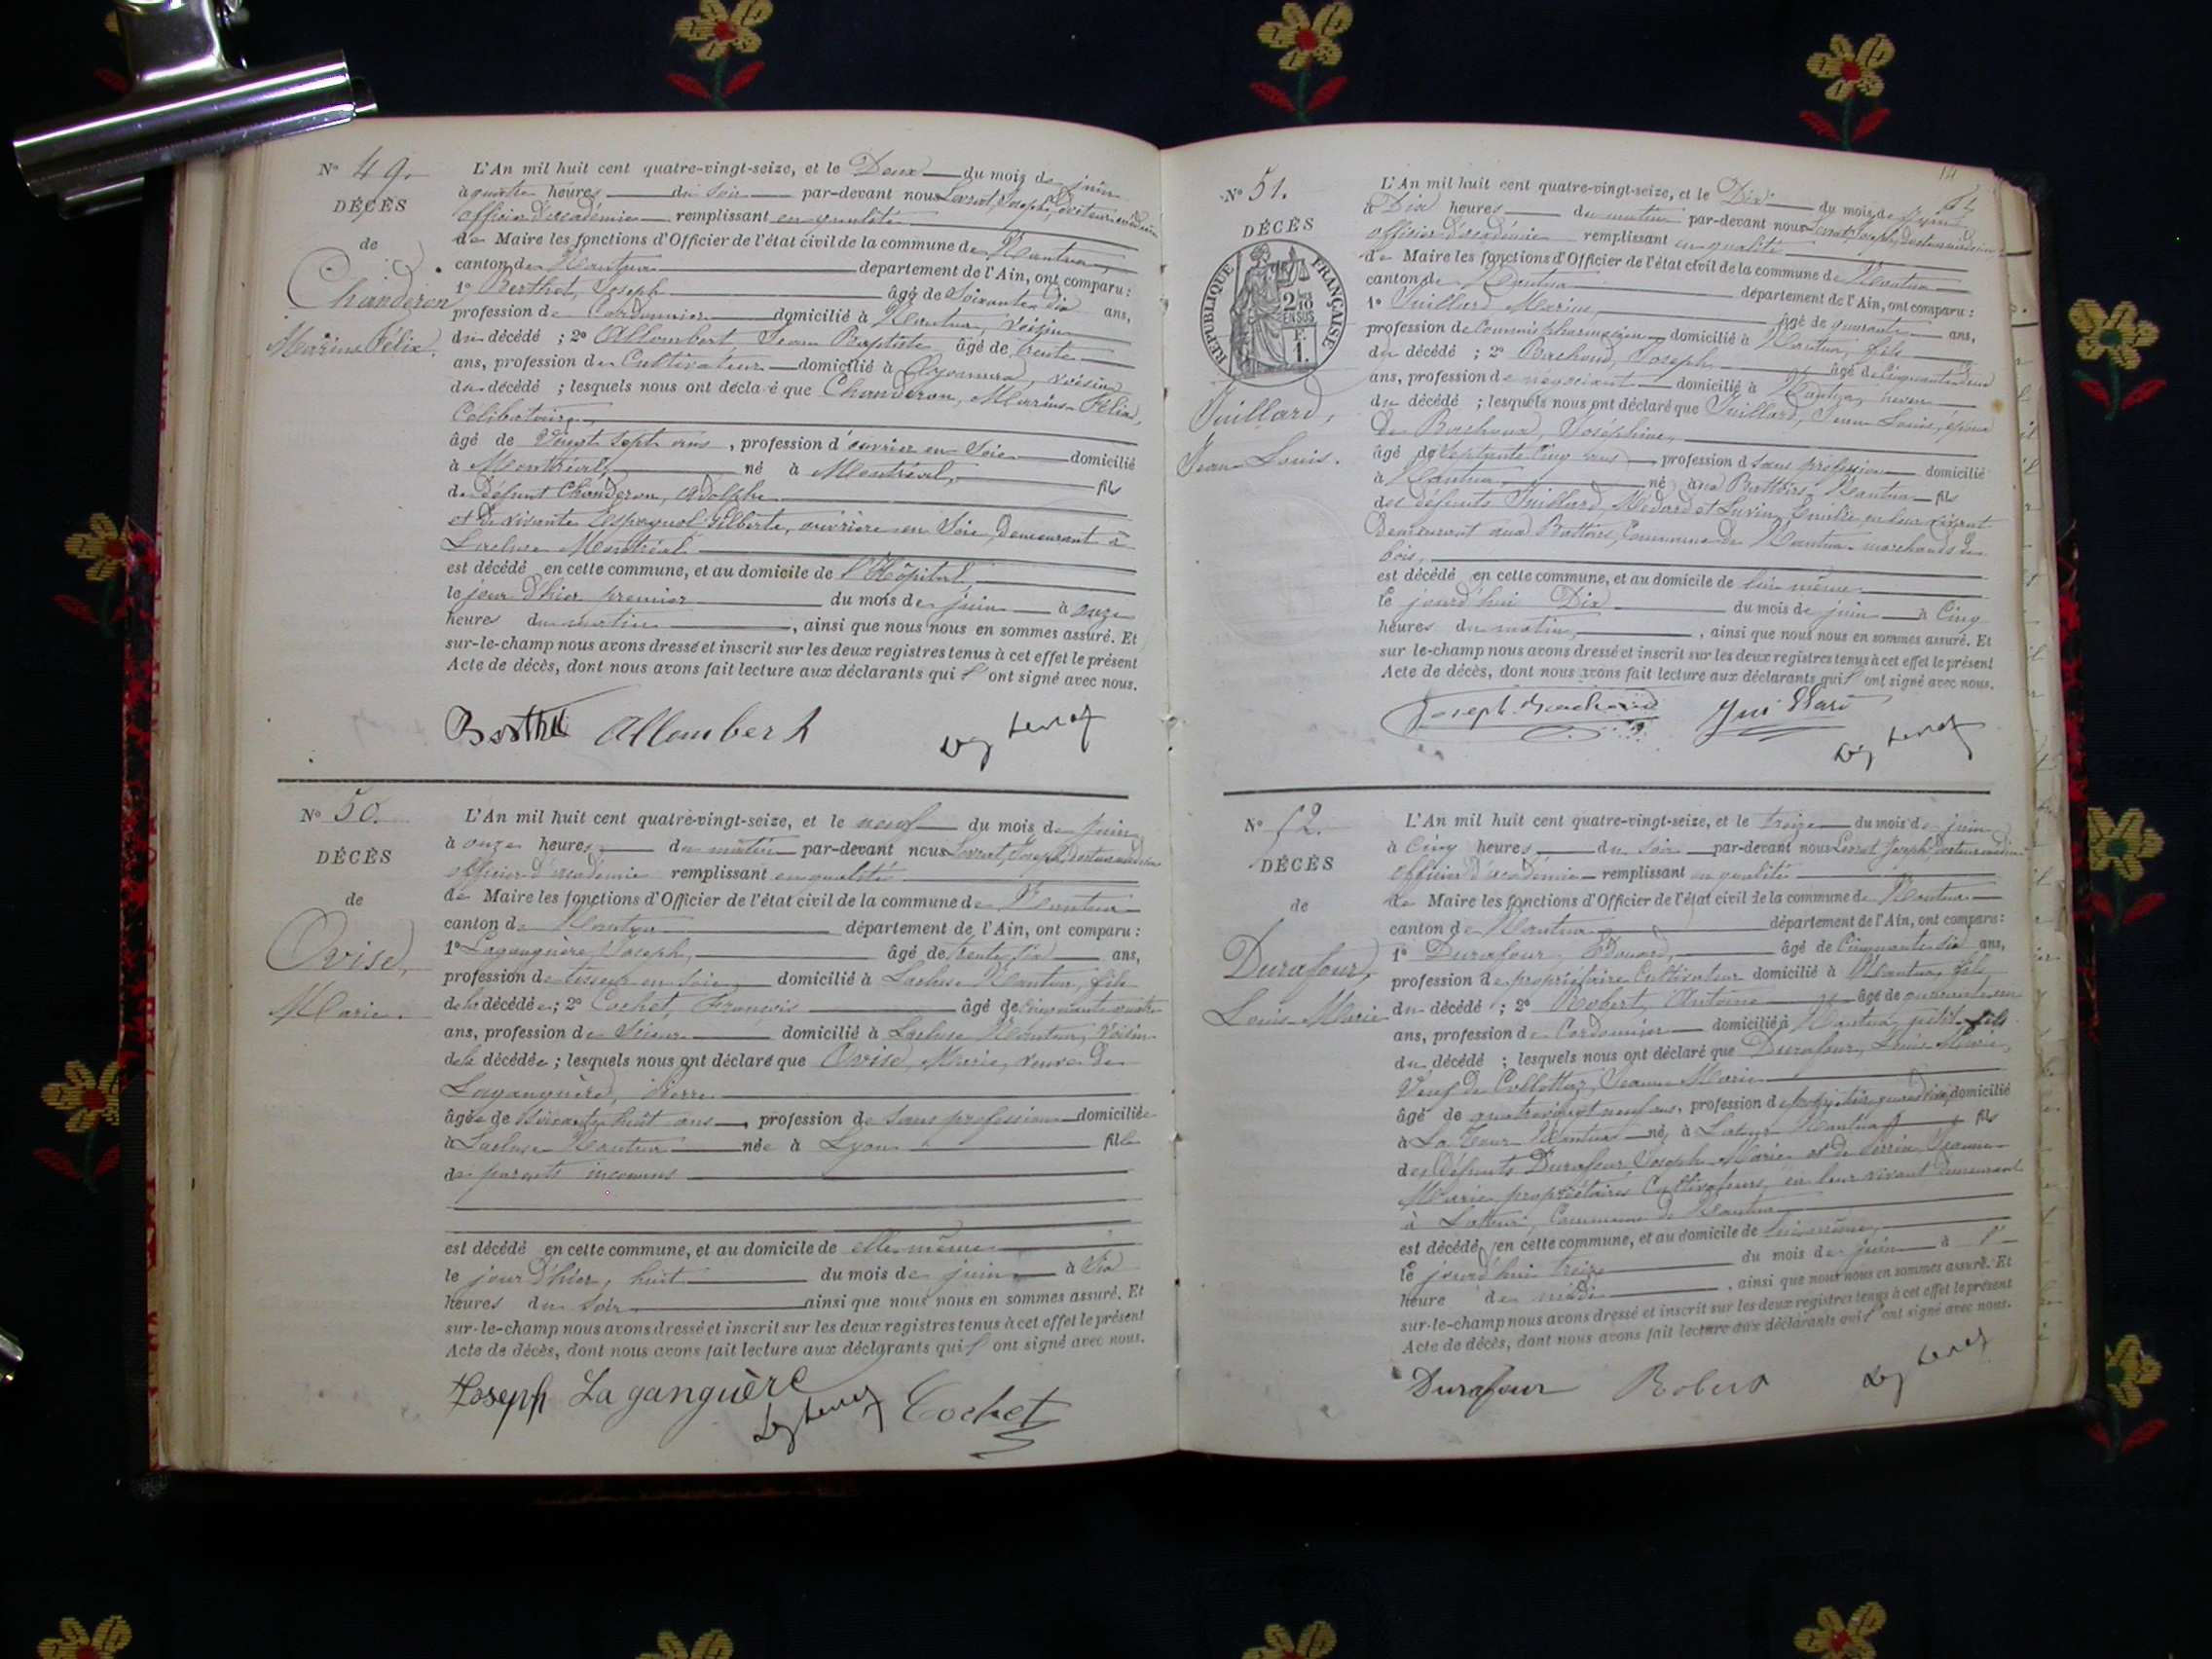 N° 49.
DÉCÈS
de
Chanderon
Marius Félix.
L'An mil huit cent quatre-vingt-seize, et le Deux du mois de juin
à quatre heures du soir par-devant nous Levrat, Joseph, Docteur médecin
officier d'académie remplissant en qualité
de Maire les fonctions d'Officier de l'état civil de la commune de Nantua,
canton de Nantua département de l'Ain, ont comparu :
1° Berthet, Joseph âgé de Soixante dix ans,
profession de Cordonnier domicilié à Nantua, voisin
du décédé ; 2° Allombert, Jean Baptiste âgé de trente
ans, profession de Cultivateur domicilié à voisin
du décédé ; lesquels nous ont déclaré que Chanderon, Marius Félix,
Célibataire,
âgé de Vingt sept ans, profession d'ouvrier en Soie domicilié
à Montréal, né à Montréal, fils
de défunt Chanderon, Adolphe
et de vivante Lespagnol Gilberte, ouvrière en Soie, demeurant à
Lacluse Montréal
est décédé en cette commune, et au domicile de l'Hôpital
le jour d'hier premier du mois de juin à onze
heures du matin, ainsi que nous nous en sommes assuré. Et
sur-le-champ nous avons dressé et inscrit sur les deux registres tenus à cet effet le présent
Acte de décès, dont nous avons fait lecture aux déclarants qui l'ont signé avec nous.
Berthet Allombert Levrat
N° 50.
DÉCÈS
de
Ovise,
Marie.
L'An mil huit cent quatre-vingt-seize, et le neuf du mois de juin
à onze heures du matin par-devant nous Levrat, Joseph, Docteur médecin
officier d'académie remplissant en qualité
de Maire les fonctions d'Officier de l'état civil de la commune de Nantua
canton de Nantua département de l'Ain, ont comparu :
1° Laganguère Joseph, âgé de trente six ans,
profession de tisseur en soie domicilié à Lacluse Nantua, fils
de la décédée; 2° Cochet, François âgé de Cinquante quatre
ans, profession de Scieur domicilié à Lacluse Nantua, voisin
de la décédée; lesquels nous ont déclaré que Ovise, Marie, veuve de
Laganguère, Pierre
âgée de soixante huit ans, profession de sans profession domiciliée
à Lacluse Nantua née à Lyon fille
de parents inconnus
est décédé en cette commune, et au domicile de elle même
le jour d'hier, huit du mois de juin à Six
heures du soir ainsi que nous nous en sommes assuré. Et
sur-le-champ nous avons dressé et inscrit sur les deux registres tenus à cet effet le présent
Acte de décès, dont nous avons fait lecture aux déclarants qui l'ont signé avec nous.
Joseph Laganguère Levrat Cochet
N° 51.
DÉCÈS
RÉPUBLIQUE FRANÇAISE
2/10 EN SUS
F 1.
Juillard,
Jean Louis.
L'An mil huit cent quatre-vingt-seize, et le Dix du mois de Juin
à Dix heures du matin par-devant nous Levrat, Joseph, Docteur médecin
officier d'académie remplissant en qualité
de Maire les fonctions d'Officier de l'état civil de la commune de Nantua
canton de Nantua département de l'Ain, ont comparu :
1° Juillard Marius, âgé de quarante ans,
profession de Commis pharmacien domicilié à Nantua, fils
du décédé ; 2° Bachoud, Joseph âgé de Cinquante deux
ans, profession de négociant domicilié à Nantua, neveu
du décédé ; lesquels nous ont déclaré que Juillard, Jean Louis, époux
de Bachoud, Joséphine,
âgé de Septante Cinq ans, profession de sans profession domicilié
à Nantua, né aux Battoirs Nantua fils
des défunts Juillard, Médard et Emilie, en leur vivant
demeurant aux Battoirs, Commune de Nantua marchands de
bois,
est décédé en cette commune, et au domicile de lui même
le jourd'hui Dix du mois de juin à Cinq
heures du matin, ainsi que nous nous en sommes assuré. Et
sur le-champ nous avons dressé et inscrit sur les deux registres tenus à cet effet le présent
Acte de décès, dont nous avons fait lecture aux déclarants qui l'ont signé avec nous.
Joseph Bachoud Juillard Levrat
N° 52.
DÉCÈS
de
Durafour,
Louis Marie
L'An mil huit cent quatre-vingt-seize, et le treize du mois de juin
à Cinq heures du soir par-devant nous Levrat Joseph, Docteur médecin
officier d'académie remplissant en qualité
de Maire les fonctions d'Officier de l'état civil de la commune de Nantua
canton de Nantua département de l'Ain, ont comparu :
1° Durafour, Edouard, âgé de Cinquante six ans,
profession de propriétaire Cultivateur domicilié à Nantua, fils
du décédé ; 2° Robert, Antoine âgé de quarante un
ans, profession de Cordonnier domicilié à Nantua, petit-fils
du décédé ; lesquels nous ont déclaré que Durafour, Louis Marie,
Veuf de Collettaz, Jeanne Marie
âgé de quatre vingt neuf ans, profession de domicilié
à La Tour Nantua né à Nantua fils
des Défunts Durafour Joseph Marie et de Perrin, Jeanne
Marie, propriétaires Cultivateurs, en leur vivant demeurant
à Commune de Nantua
est décédé en cette commune, et au domicile de lui même,
le jourd'hui treize du mois de juin à 1
heure de midi, ainsi que nous nous en sommes assuré. Et
sur-le-champ nous avons dressé et inscrit sur les deux registres tenus à cet effet le présent
Acte de décès, dont nous avons fait lecture aux déclarants qui l'ont signé avec nous.
Durafour Robert Levrat